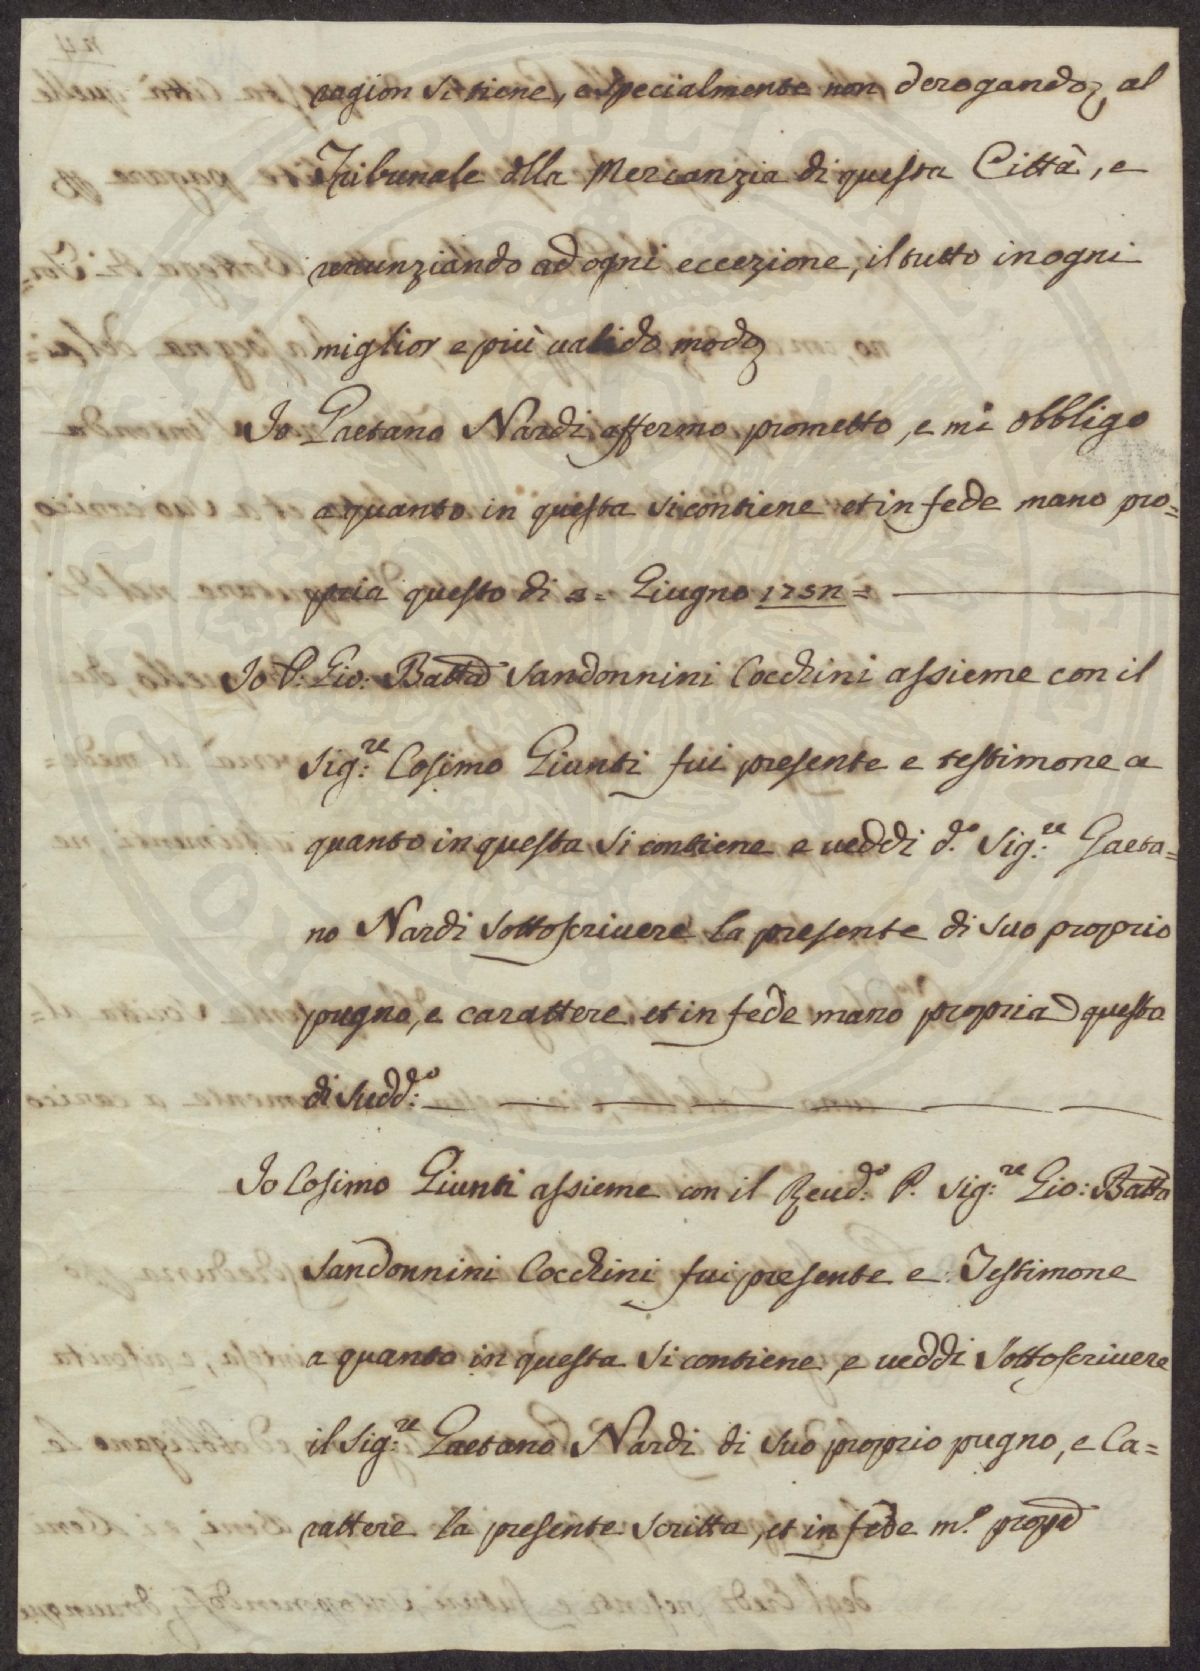 ragion si tiene, e specialmente non derogando al
Tribunale della Mercanzia di questa Città, e
renunziando ad ogni eccezione, il tutto in ogni
miglior e più valido modo
Io Gaetano Nardi affermo prometto, e mi obbligo
a quanto in questa si contiene et in fede mano pro=
pria questo di 2= Giugno
Io P: Gio: Batta Sandonnini Cocchini assieme con il
Sig:re Cosimo Giunti fui presente e testimone a
quanto in questa si contiene e veddi d.o Sig:re Gaeta=
no Nardi sottoscrivere la presente di suo proprio
pugno, e carattere et in fede mano propria questo
di Sudd:o
Io Cosimo Giunti assieme con il Reud:o P. Sig:re Gio: Batta
Sandonnini Cocchini fui presente e Testimone
a quanto in questa si contiene, e veddi sottoscrivere
il Sig:re Gaetano Nardi di suo proprio pugno, e Ca=
rattere la presente scritta, et in fede m.o propa